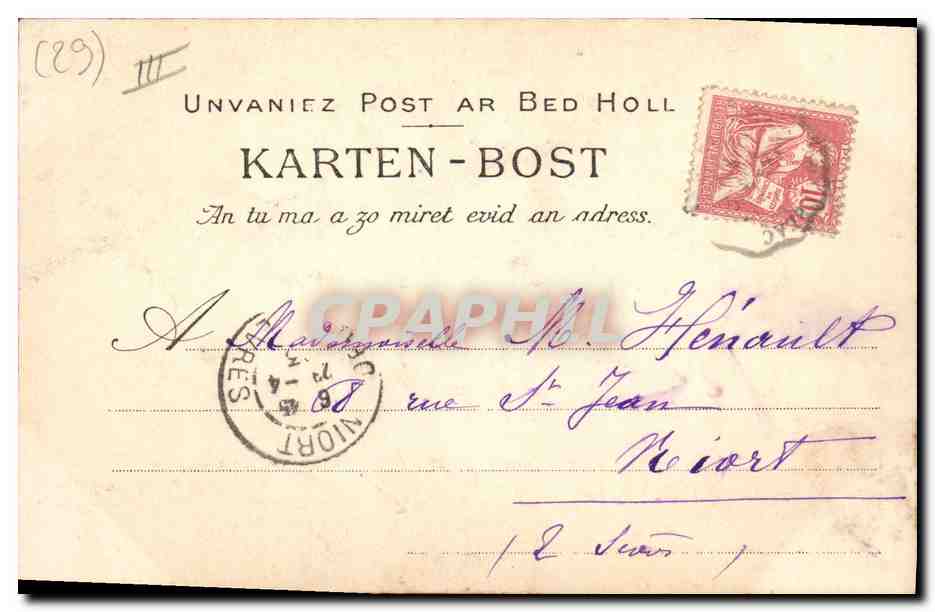 (29)
III
UNVANIEZ POST AR BED HOLL
KARTEN-BOST
An tu ma a zo miret evid an adress.
10
CPAPHIL
A Mademoiselle M. Hénault
68 rue St Jean
Niort
(2 Sèvres)
NIORT